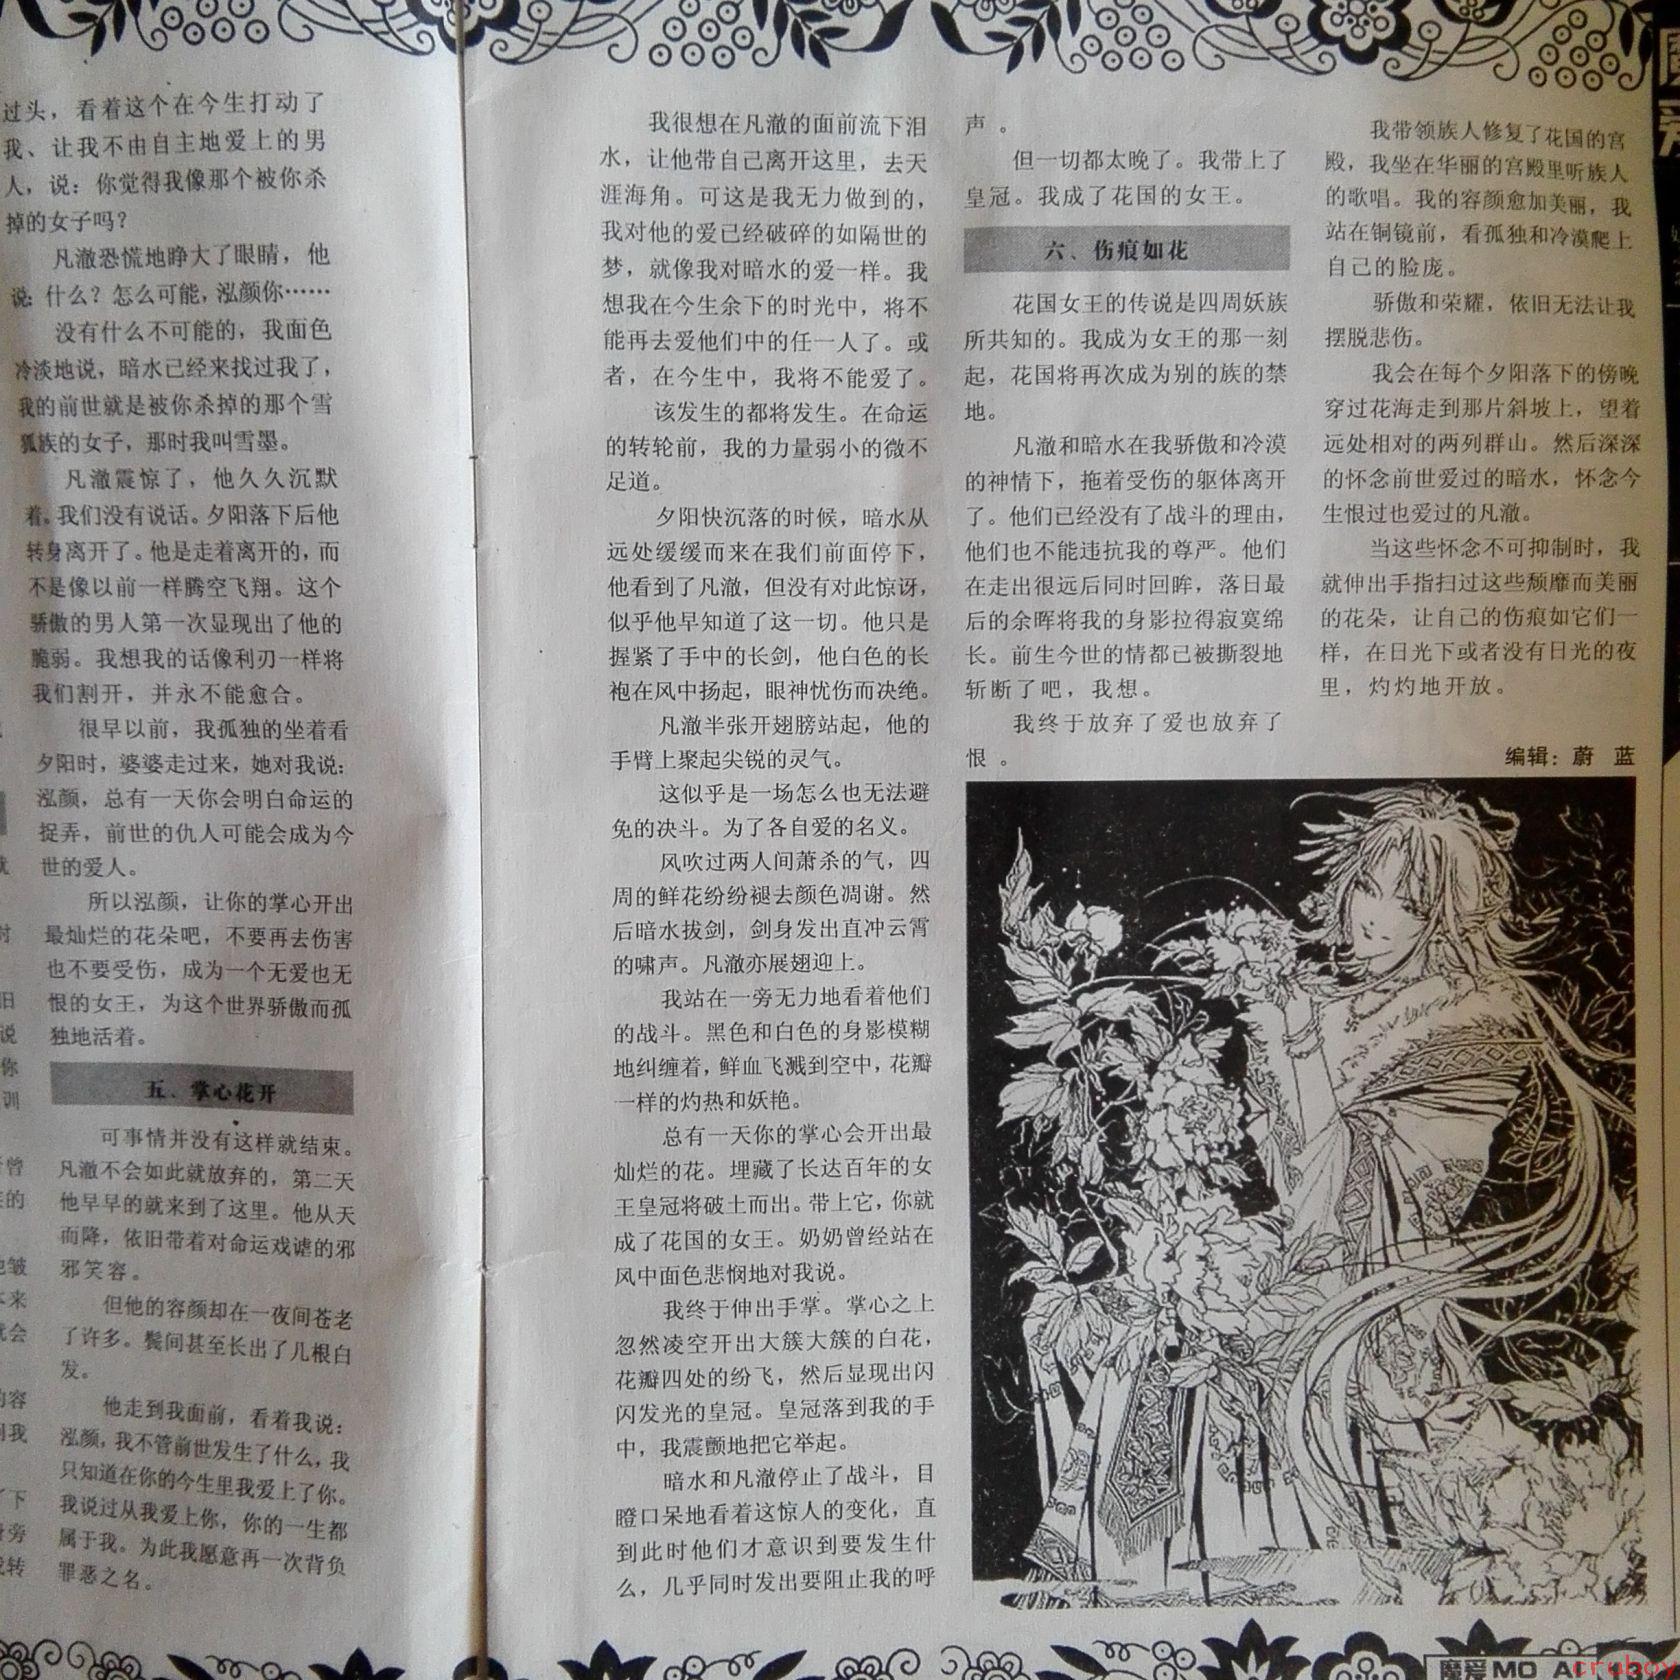 过头，看着这个在今生打动了
我、让我不由自主地爱上的男
人，说：你觉得我像那个被你杀
掉的女子吗？
凡澈恐慌地睁大了眼睛，他
说：什么？怎么可能，泓颜你……
没有什么不可能的，我面色
冷淡地说，暗水已经来找过我了，
我的前世就是被你杀掉的那个雪
狐族的女子，那时我叫雪墨。
凡澈震惊了，他久久沉默
着。我们没有说话。夕阳落下后他
转身离开了。他是走着离开的，而
不是像以前一样腾空飞翔。这个
骄傲的男人第一次显现出了他的
脆弱。我想我的话像利刃一样将
我们割开，并永不能愈合。
很早以前，我孤独的坐着看
夕阳时，婆婆走过来，她对我说：
泓颜，总有一天你会明白命运的
捉弄，前世的仇人可能会成为今
世的爱人。
所以泓颜，让你的掌心开出
最灿烂的花朵吧，不要再去伤害
也不要受伤，成为一个无爱也无
恨的女王，为这个世界骄傲而孤
独地活着。
五、掌心花开
可事情并没有这样就结束。
凡澈不会如此就放弃的，第二天
他早早的就来到了这里。他从天
而降，依旧带着对命运戏谑的邪
邪笑容。
但他的容颜却在一夜间苍老
了许多。鬓间甚至长出了几根白
发。
他走到我面前，看着我说：
泓颜，我不管前世发生了什么，我
只知道在你的今生里我爱上了你。
我说过从我爱上你，你的一生都
属于我。为此我愿意再一次背负
罪恶之名。
我很想在凡澈的面前流下泪
水，让他带自己离开这里，去天
涯海角。可这是我无力做到的，
我对他的爱已经破碎的如隔世的
梦，就像我对暗水的爱一样。我
想我在今生余下的时光中，将不
能再去爱他们中的任一人了。或
者，在今生中，我将不能爱了。
该发生的都将发生。在命运
的转轮前，我的力量弱小的微不
足道。
夕阳快沉落的时候，暗水从
远处缓缓而来在我们前面停下，
他看到了凡澈，但没有对此惊讶，
似乎他早知道了这一切。他只是
握紧了手中的长剑，他白色的长
袍在风中扬起，眼神忧伤而决绝。
凡澈半张开翅膀站起，他的
手臂上聚起尖锐的灵气。
这似乎是一场怎么也无法避
免的决斗。为了各自爱的名义。
风吹过两人间萧杀的气，四
周的鲜花纷纷褪去颜色凋谢。然
后暗水拔剑，剑身发出直冲云霄
的啸声。凡澈亦展翅迎上。
我站在一旁无力地看着他们
的战斗。黑色和白色的身影模糊
地纠缠着，鲜血飞溅到空中，花瓣
一样的灼热和妖艳。
总有一天你的掌心会开出最
灿烂的花。埋藏了长达百年的女
王皇冠将破土而出。带上它，你就
成了花国的女王。奶奶曾经站在
风中面色悲悯地对我说。
我终于伸出手掌。掌心之上
忽然凌空开出大簇大簇的白花，
花瓣四处的纷飞，然后显现出闪
闪发光的皇冠。皇冠落到我的手
中，我震颤地把它举起。
暗水和凡澈停止了战斗，目
瞪口呆地看着这惊人的变化，直
到此时他们才意识到要发生什
么，几乎同时发出要阻止我的呼
声。
但一切都太晚了。我带上了
皇冠。我成了花国的女王。
六、伤痕如花
花国女王的传说是四周妖族
所共知的。我成为女王的那一刻
起，花国将再次成为别的族的禁
地。
凡澈和暗水在我骄傲和冷漠
的神情下，拖着受伤的躯体离开
了。他们已经没有了战斗的理由，
他们也不能违抗我的尊严。他们
在走出很远后同时回眸，落日最
后的余晖将我的身影拉得寂寞绵
长。前生今世的情都已被撕裂地
斩断了吧，我想。
我终于放弃了爱也放弃了
恨。
我带领族人修复了花国的宫
殿，我坐在华丽的宫殿里听族人
的歌唱。我的容颜愈加美丽，我
站在铜镜前，看孤独和冷漠爬上
自己的脸庞。
骄傲和荣耀，依旧无法让我
摆脱悲伤。
我会在每个夕阳落下的傍晚
穿过花海走到那片斜坡上，望着
远处相对的两列群山。然后深深
的怀念前世爱过的暗水，怀念今
生恨过也爱过的凡澈。
当这些怀念不可抑制时，我
就伸出手指扫过这些颓靡而美丽
的花朵，让自己的伤痕如它们一
样，在日光下或者没有日光的夜
里，灼灼地开放。
编辑：蔚 蓝
魔爱MO A
crubox